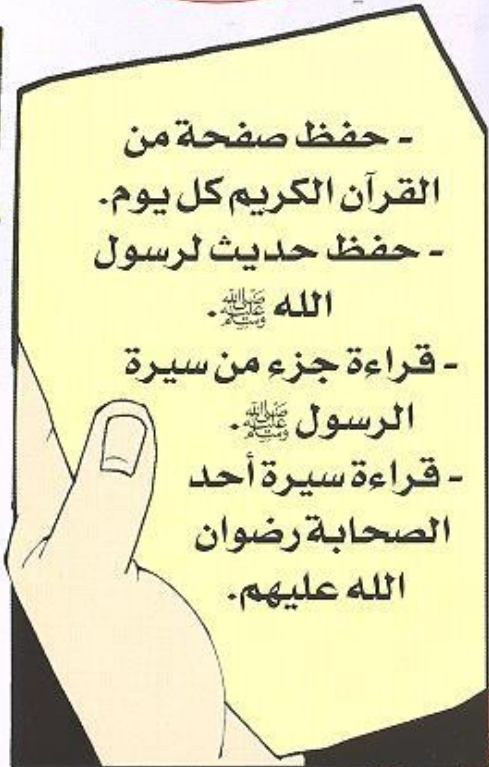 - حفظ صفحة من
القرآن الكريم كل يوم.
- حفظ حديث لرسول
الله ﷺ.
- قراءة جزء من سيرة
الرسول ﷺ.
- قراءة سيرة أحد
الصحابة رضوان
الله عليهم.